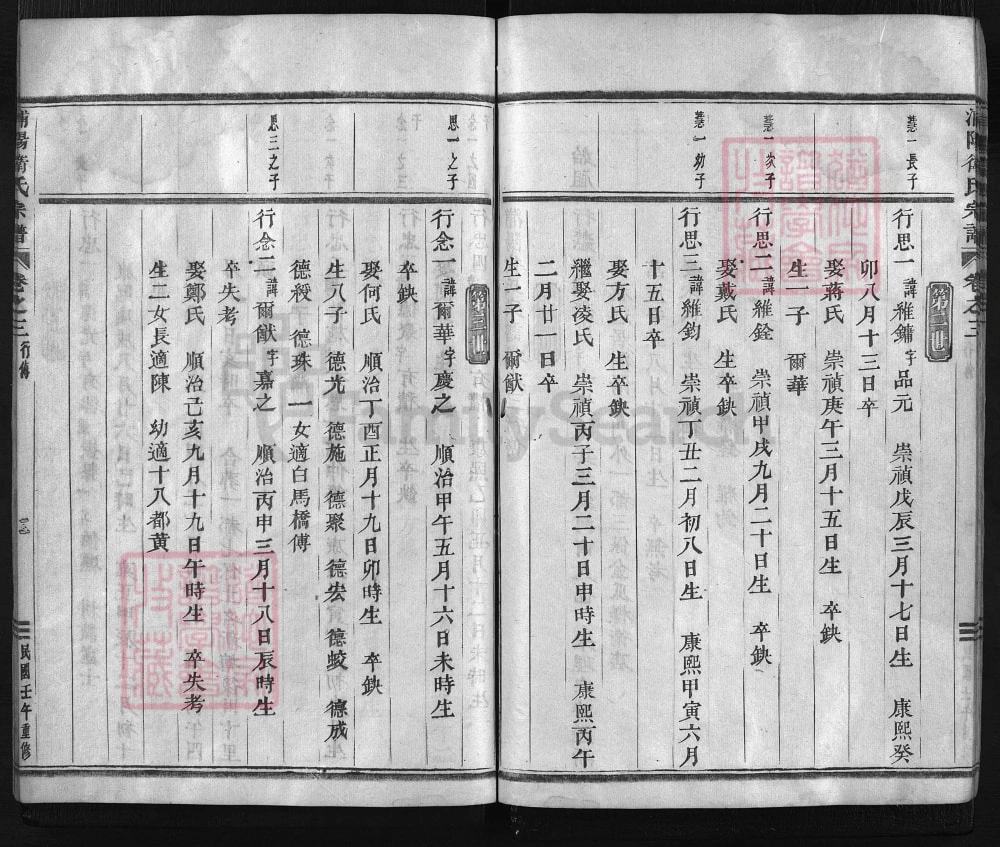 浦陽衛氏宗譜 卷之三
第三卅
慧一長子
行思一 諱維鏞字品元 崇禎戊辰三月十七日生 康熙癸
卯八月十三日卒
娶蔣氏 崇禎庚午三月十五日生 卒缺
生一子 爾華
慧一次子
行思二 諱維銓 崇禎甲戌九月二十日生 卒缺
娶戴氏 生卒缺
慧一幼子
行思三 諱維鈞 崇禎丁丑二月初八日生 康熙甲寅六月
十五日卒
娶方氏 生卒缺
繼娶凌氏 崇禎丙子三月二十日申時生 康熙丙午
二月廿一日卒
生一子 爾猷
思一之子
行念一 諱爾華字慶之 順治甲午五月十六日未時生
卒缺
娶何氏 順治丁酉正月十九日卯時生 卒缺
生八子 德光 德施 德聚 德宏 德蛟 德成
德綬 德珠 一女適白馬橋傅
思三之子
行念二 諱爾猷字嘉之 順治丙申三月十八日辰時生
卒失考
娶鄭氏 順治己亥九月十九日午時生 卒失考
生二女長適陳 幼適十八都黃
浦陽衛氏宗譜 卷之三 行傳
民國壬午重修
FamilySearch